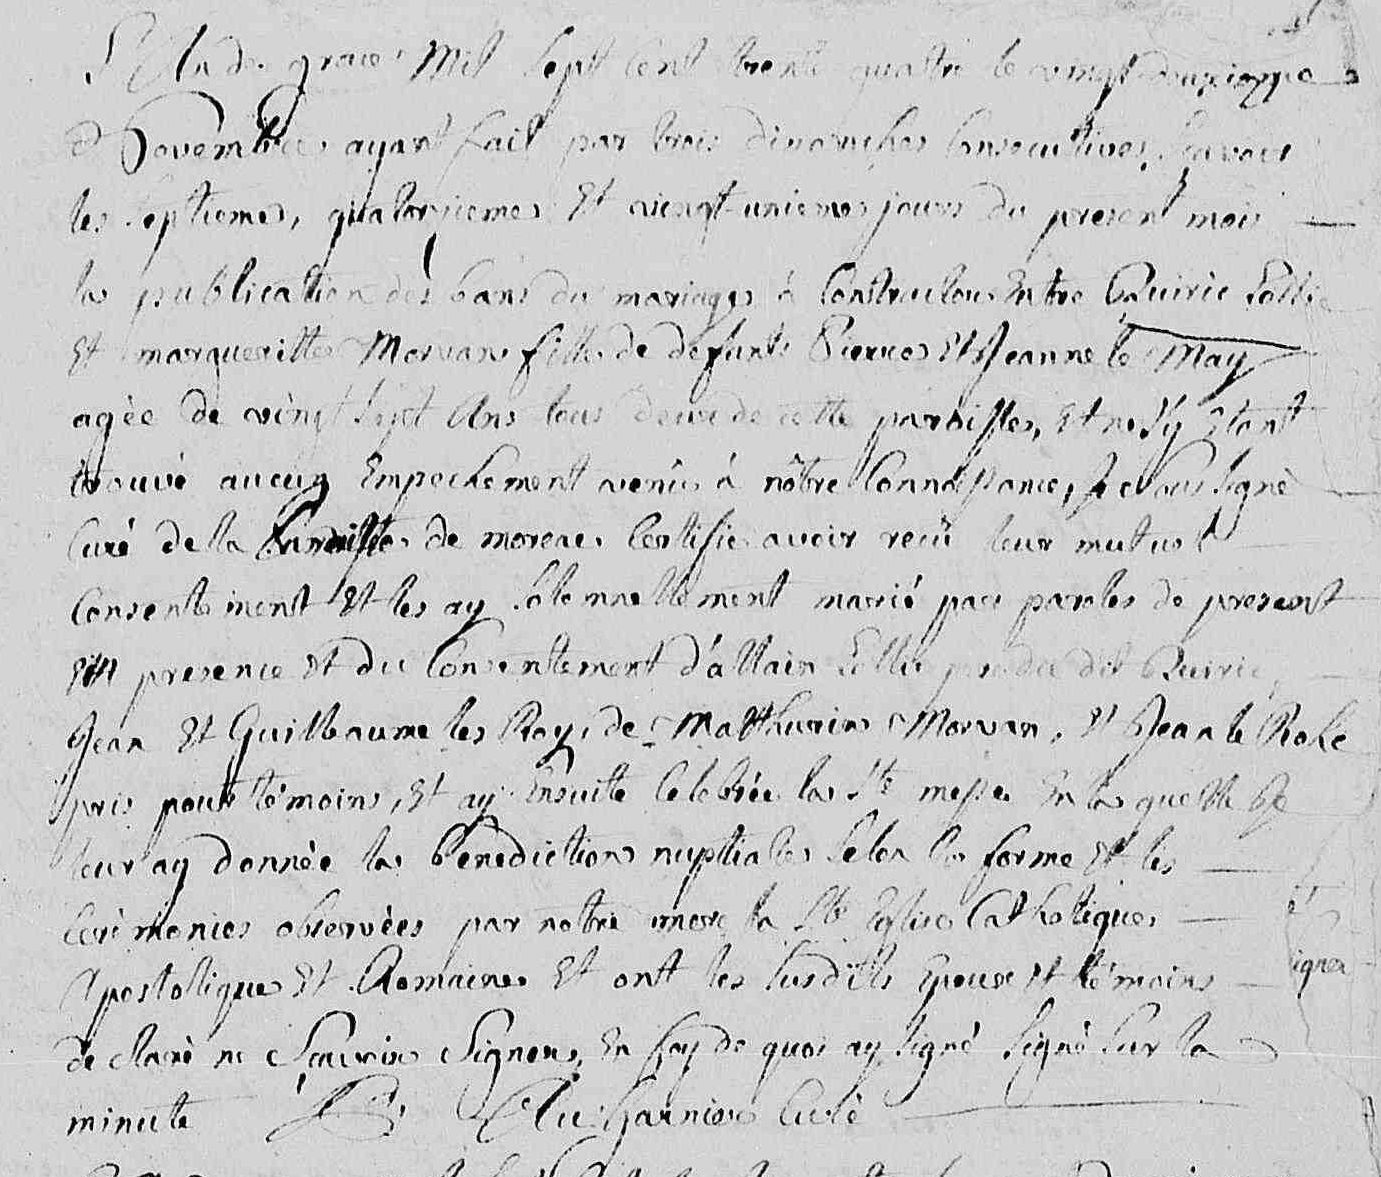 L'An de grace Mil Sept Cent trente quattre le vingt deuxieme
Novembre ayant fait par trois dimanches Consecutives, Scavoir
les Septieme, quatorzieme Et viengt-unieme jours du present mois
la publication des bans du mariage à Contracter Entre Quirie
Et margueritte Morvan fille de defunts Pierre Et Jeanne le May
agèe de vingt Sept Ans tous deux de cette paroisse, Et ne s'y Etant
trouvé aucun Empechement venû à nôtre Connoissance, Je Sousigné
Curé de la Parroisse de moreac Certifie avoir reçû leur mutuel
Consentement Et les ay Solemnellement marié par paroles de present
En presence Et du Consentement d'allain pere du dit Quirie,
Jean Et Guillaume les Roy, de Matthurin Morvan, Et Jean le
pris pour témoins, Et ay Ensuite Celebrée la Ste messe En la quelle Je
leur ay donnée la benediction nuptiale Selon la forme Et les
Cerémonies observées par notre mere la Ste Eglise Catholique
Apostolique Et Romaine Et ont les Susdits Epoux Et témoins
de claré ne Scavoir Signer, En foy de quoi ay Signé Signé Sur la
minute Garnier Curé